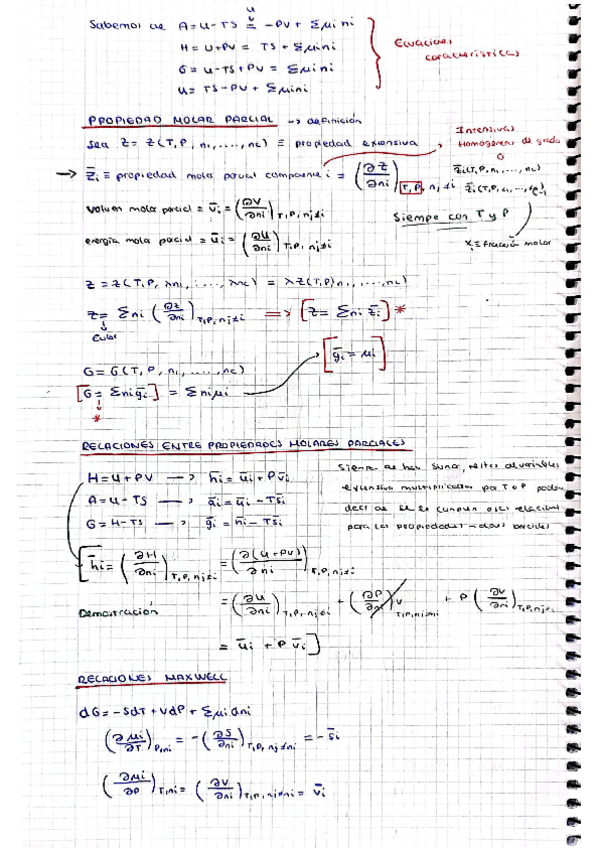 u
Sabemos que A = U - TS = -PV + Σμini
H = U + PV = TS + Σμini
G = U - TS + PV = Σμini
U = TS - PV + Σμini
Ecuaciones características
PROPIEDAD MOLAR PARCIAL → definición
Sea Z = Z(T, P, n1, ...., nc) ≡ propiedad extensiva
Intensivas
Homogéneas de grado 0
z̄i ≡ propiedad molar parcial componente i = (∂Z/∂ni)T,P,nj≠i
z̄i(T, P, n1, ...., nc)
volumen molar parcial = v̄i = (∂V/∂ni)T,P,nj≠i
Siempre con T y P
energía molar parcial = ūi = (∂U/∂ni)T,P,nj≠i
xi ≡ fracción molar
Z = Z(T, P, λn1, ...., λnc) = λZ(T, P, n1, ...., nc)
Z = Σni (∂Z/∂ni)T,P,nj≠i ⇒ [Z = Σni z̄i] *
Euler
[ḡi = μi]
G = G(T, P, n1, ...., nc)
[G = Σniḡi] = Σniμi
*
RELACIONES ENTRE PROPIEDADES MOLARES PARCIALES
H = U + PV → h̄i = ūi + Pv̄i
A = U - TS → āi = ūi - Ts̄i
G = H - TS → ḡi = h̄i - Ts̄i
Siempre que haya sumas, restas de variables
extensivas multiplicadas por T o P
decir que se cumplen esas relaciones
para las propiedades molares parciales
[h̄i = (∂H/∂ni)T,P,nj≠i = (∂(U+PV)/∂ni)T,P,nj≠i
Demostración
= (∂U/∂ni)T,P,nj≠i + (∂P/∂ni)V + P (∂V/∂ni)T,P,nj≠i
= ūi + P v̄i]
RELACIONES MAXWELL
dG = -SdT + VdP + Σμidni
(∂μi/∂T)P,ni = -(∂S/∂ni)T,P,nj≠ni = -s̄i
(∂μi/∂P)T,ni = (∂V/∂ni)T,P,nj≠ni = v̄i